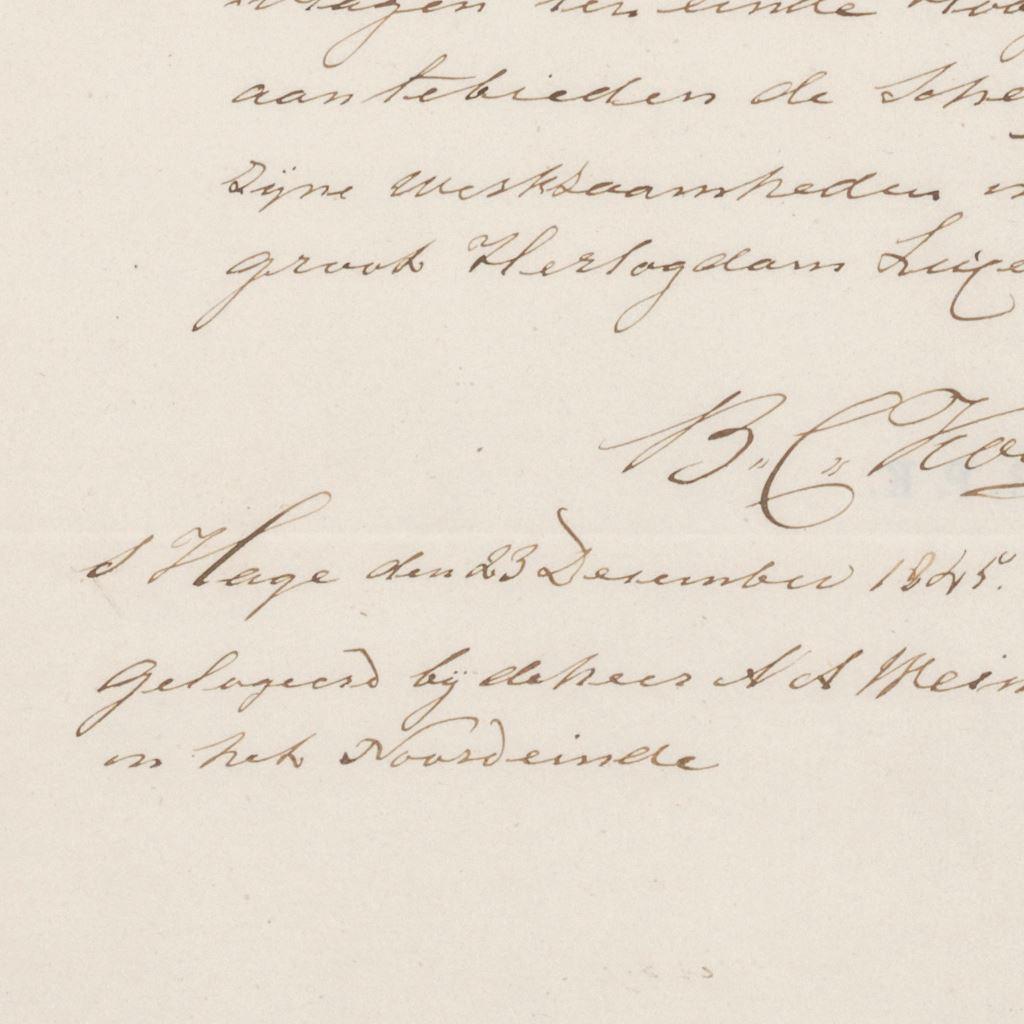 vragen ten einde
aan tebieden de Sche
zijne werkzaamheden in
groot Hertogdam Luxe
B. C. Ko
s Hage den 23 December 1845.
gelogeerd bij de heer A A Wein
in het Noordeinde